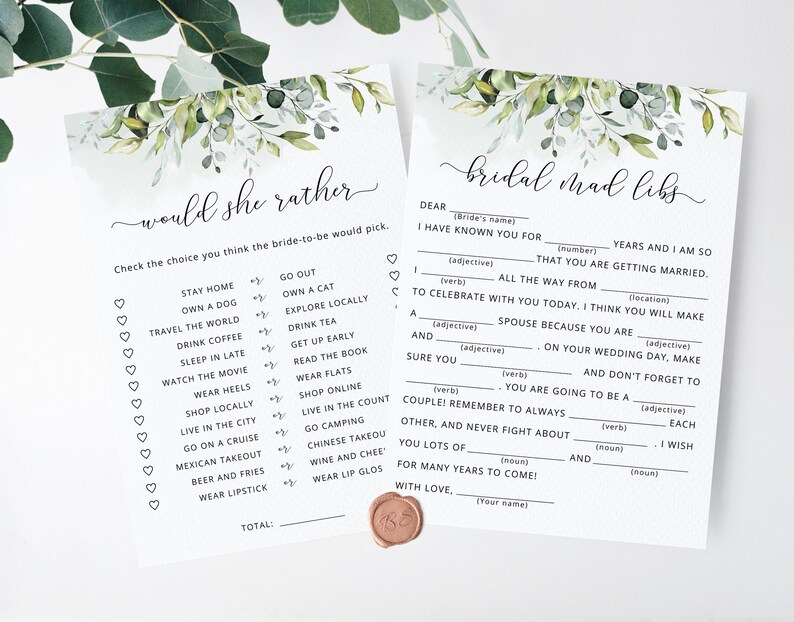 would she rather
Check the choice you think the bride-to-be would pick.
STAY HOME or GO OUT
OWN A DOG or OWN A CAT
TRAVEL THE WORLD or EXPLORE LOCALLY
DRINK COFFEE or DRINK TEA
SLEEP IN LATE or GET UP EARLY
WATCH THE MOVIE or READ THE BOOK
WEAR HEELS or WEAR FLATS
SHOP LOCALLY or SHOP ONLINE
LIVE IN THE CITY or LIVE IN THE COUNT
GO ON A CRUISE or GO CAMPING
MEXICAN TAKEOUT or CHINESE TAKEOUT
BEER AND FRIES or WINE AND CHEE
WEAR LIPSTICK or WEAR LIP GLOS
TOTAL: __________
bridal mad libs
DEAR __________
(Bride's name)
I HAVE KNOWN YOU FOR __________ YEARS AND I AM SO
(number)
__________ THAT YOU ARE GETTING MARRIED.
(adjective)
I __________ ALL THE WAY FROM __________
(verb) (location)
TO CELEBRATE WITH YOU TODAY. I THINK YOU WILL MAKE
A __________ SPOUSE BECAUSE YOU ARE __________
(adjective) (adjective)
AND __________ . ON YOUR WEDDING DAY, MAKE
(adjective)
SURE YOU __________ AND DON'T FORGET TO
(verb)
__________ . YOU ARE GOING TO BE A __________
(verb) (adjective)
COUPLE! REMEMBER TO ALWAYS __________ EACH
(verb)
OTHER, AND NEVER FIGHT ABOUT __________ . I WISH
(noun)
YOU LOTS OF __________ AND __________
(noun) (noun)
FOR MANY YEARS TO COME!
WITH LOVE, __________
(Your name)